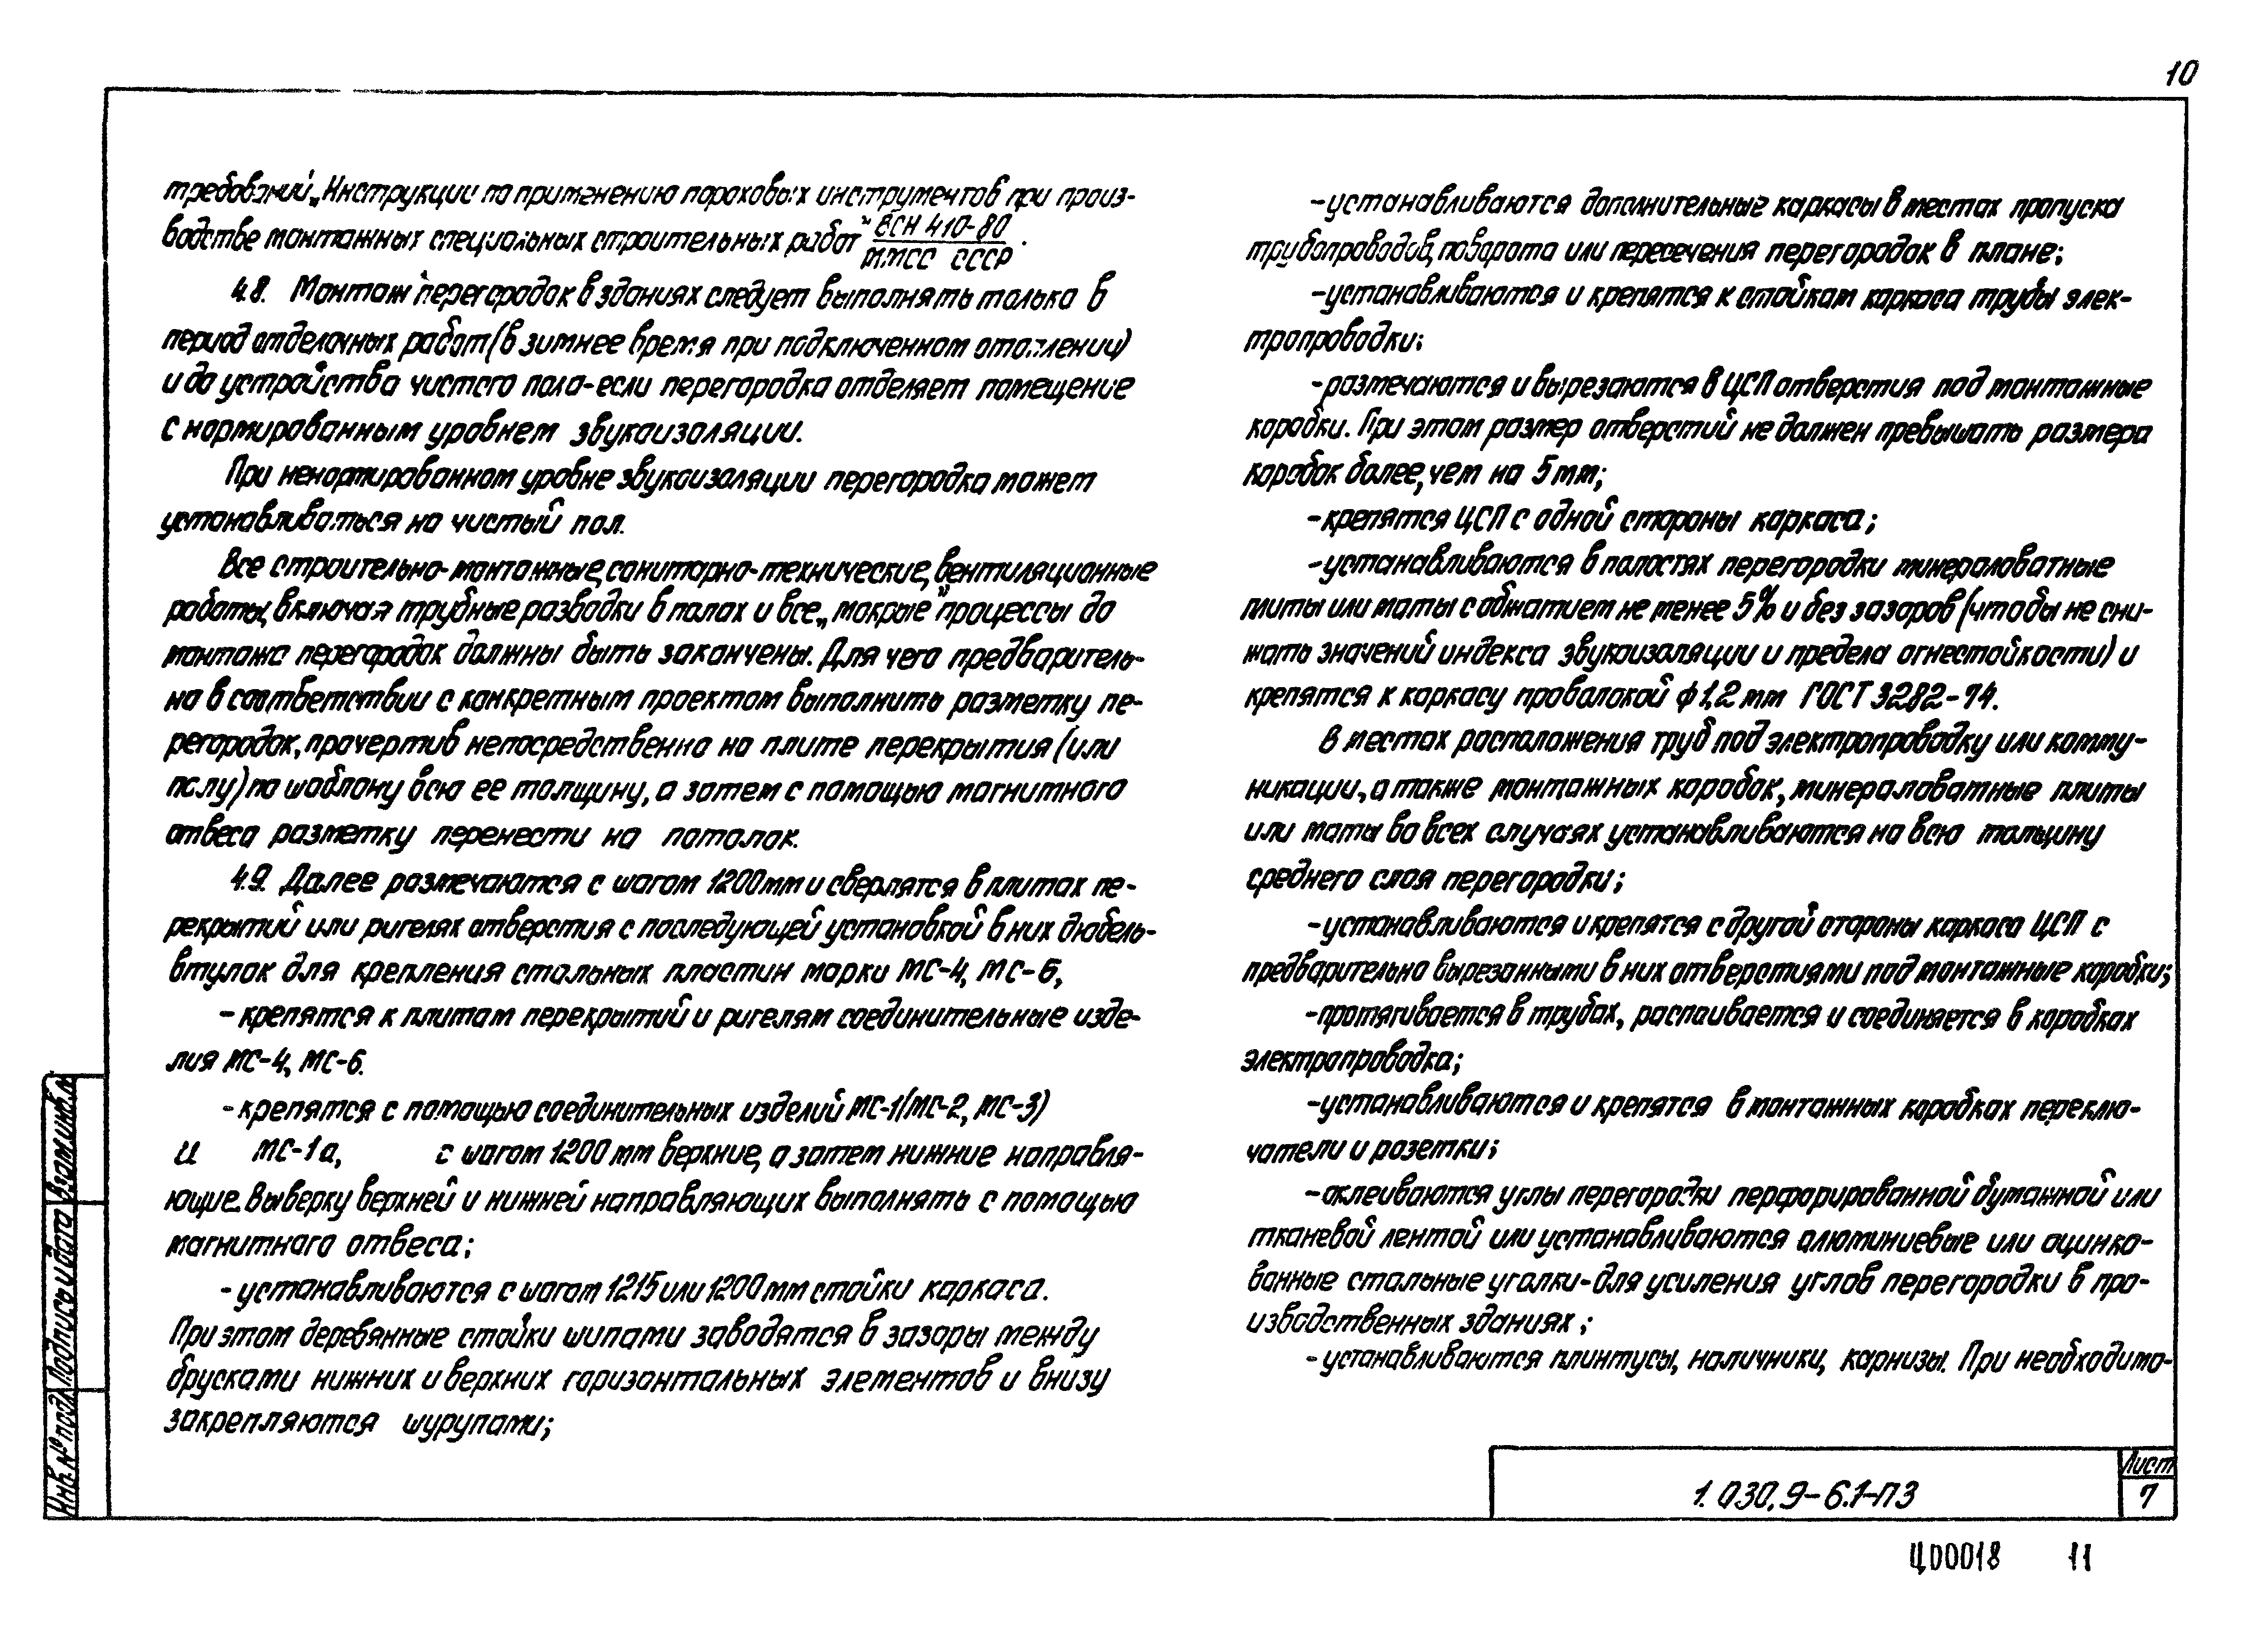 10
требований „Инструкции по применению пороховых инструментов при произ-
водстве монтажных специальных строительных работ" ВСН 410-80
ММСС СССР.
4.8. Монтаж перегородок в зданиях следует выполнять только в
период отделочных работ (в зимнее время при подключенном отоплении)
и до устройства чистого пола-если перегородка отделяет помещение
с нормированным уровнем звукоизоляции.
При ненормированном уровне звукоизоляции перегородка может
устанавливаться на чистый пол.
Все строительно-монтажные, санитарно-технические, вентиляционные
работы, включая трубные разводки в полах и все „мокрые" процессы до
монтажа перегородок должны быть закончены. Для чего предваритель-
но в соответствии с конкретным проектом выполнить разметку пе-
регородок, прочертив непосредственно на плите перекрытия (или
полу) по шаблону всю ее толщину, а затем с помощью магнитного
отвеса разметку перенести на потолок.
4.9. Далее размечаются с шагом 1200 мм и сверлятся в плитах пе-
рекрытий или ригелях отверстия с последующей установкой в них дюбель-
втулок для крепления стальных пластин марки МС-4, МС-6,
- крепятся к плитам перекрытий и ригелям соединительные изде-
лия МС-4, МС-6.
- крепятся с помощью соединительных изделий МС-1 (МС-2, МС-3)
и МС-1а, с шагом 1200 мм верхние, а затем нижние направля-
ющие. Выверку верхней и нижней направляющих выполнять с помощью
магнитного отвеса;
- устанавливаются с шагом 1215 или 1200 мм стойки каркаса.
При этом деревянные стойки шипами заводятся в зазоры между
брусками нижних и верхних горизонтальных элементов и внизу
закрепляются шурупами;
- устанавливаются дополнительные каркасы в местах пропуска
трубопроводов, поворота или пересечения перегородок в плане;
- устанавливаются и крепятся к стойкам каркаса трубы элек-
тропроводки;
- размечаются и вырезаются в ЦСП отверстия под монтажные
коробки. При этом размер отверстий не должен превышать размера
коробок более, чем на 5 мм;
- крепятся ЦСП с одной стороны каркаса;
- устанавливаются в полостях перегородки минераловатные
плиты или маты с обжатием не менее 5% и без зазоров (чтобы не сни-
жать значений индекса звукоизоляции и предела огнестойкости) и
крепятся к каркасу проволокой ф 1,2 мм ГОСТ 3282-74.
В местах расположения труб под электропроводку или комму-
никации, а также монтажных коробок, минераловатные плиты
или маты во всех случаях устанавливаются на всю толщину
среднего слоя перегородки;
- устанавливаются и крепятся с другой стороны каркаса ЦСП с
предварительно вырезанными в них отверстиями под монтажные коробки;
- протягивается в трубах, распаивается и соединяется в коробках
электропроводка;
- устанавливаются и крепятся в монтажных коробках переклю-
чатели и розетки;
- оклеиваются углы перегородки перфорированной бумажной или
тканевой лентой или устанавливаются алюминиевые или оцинко-
ванные стальные уголки-для усиления углов перегородки в про-
изводственных зданиях;
- устанавливаются плинтусы, наличники, карнизы. При необходимо-
Инв. № подл. Подпись и дата Взам. инв. №
1.030.9-6.1-ПЗ
Лист
7
Ц00018 11